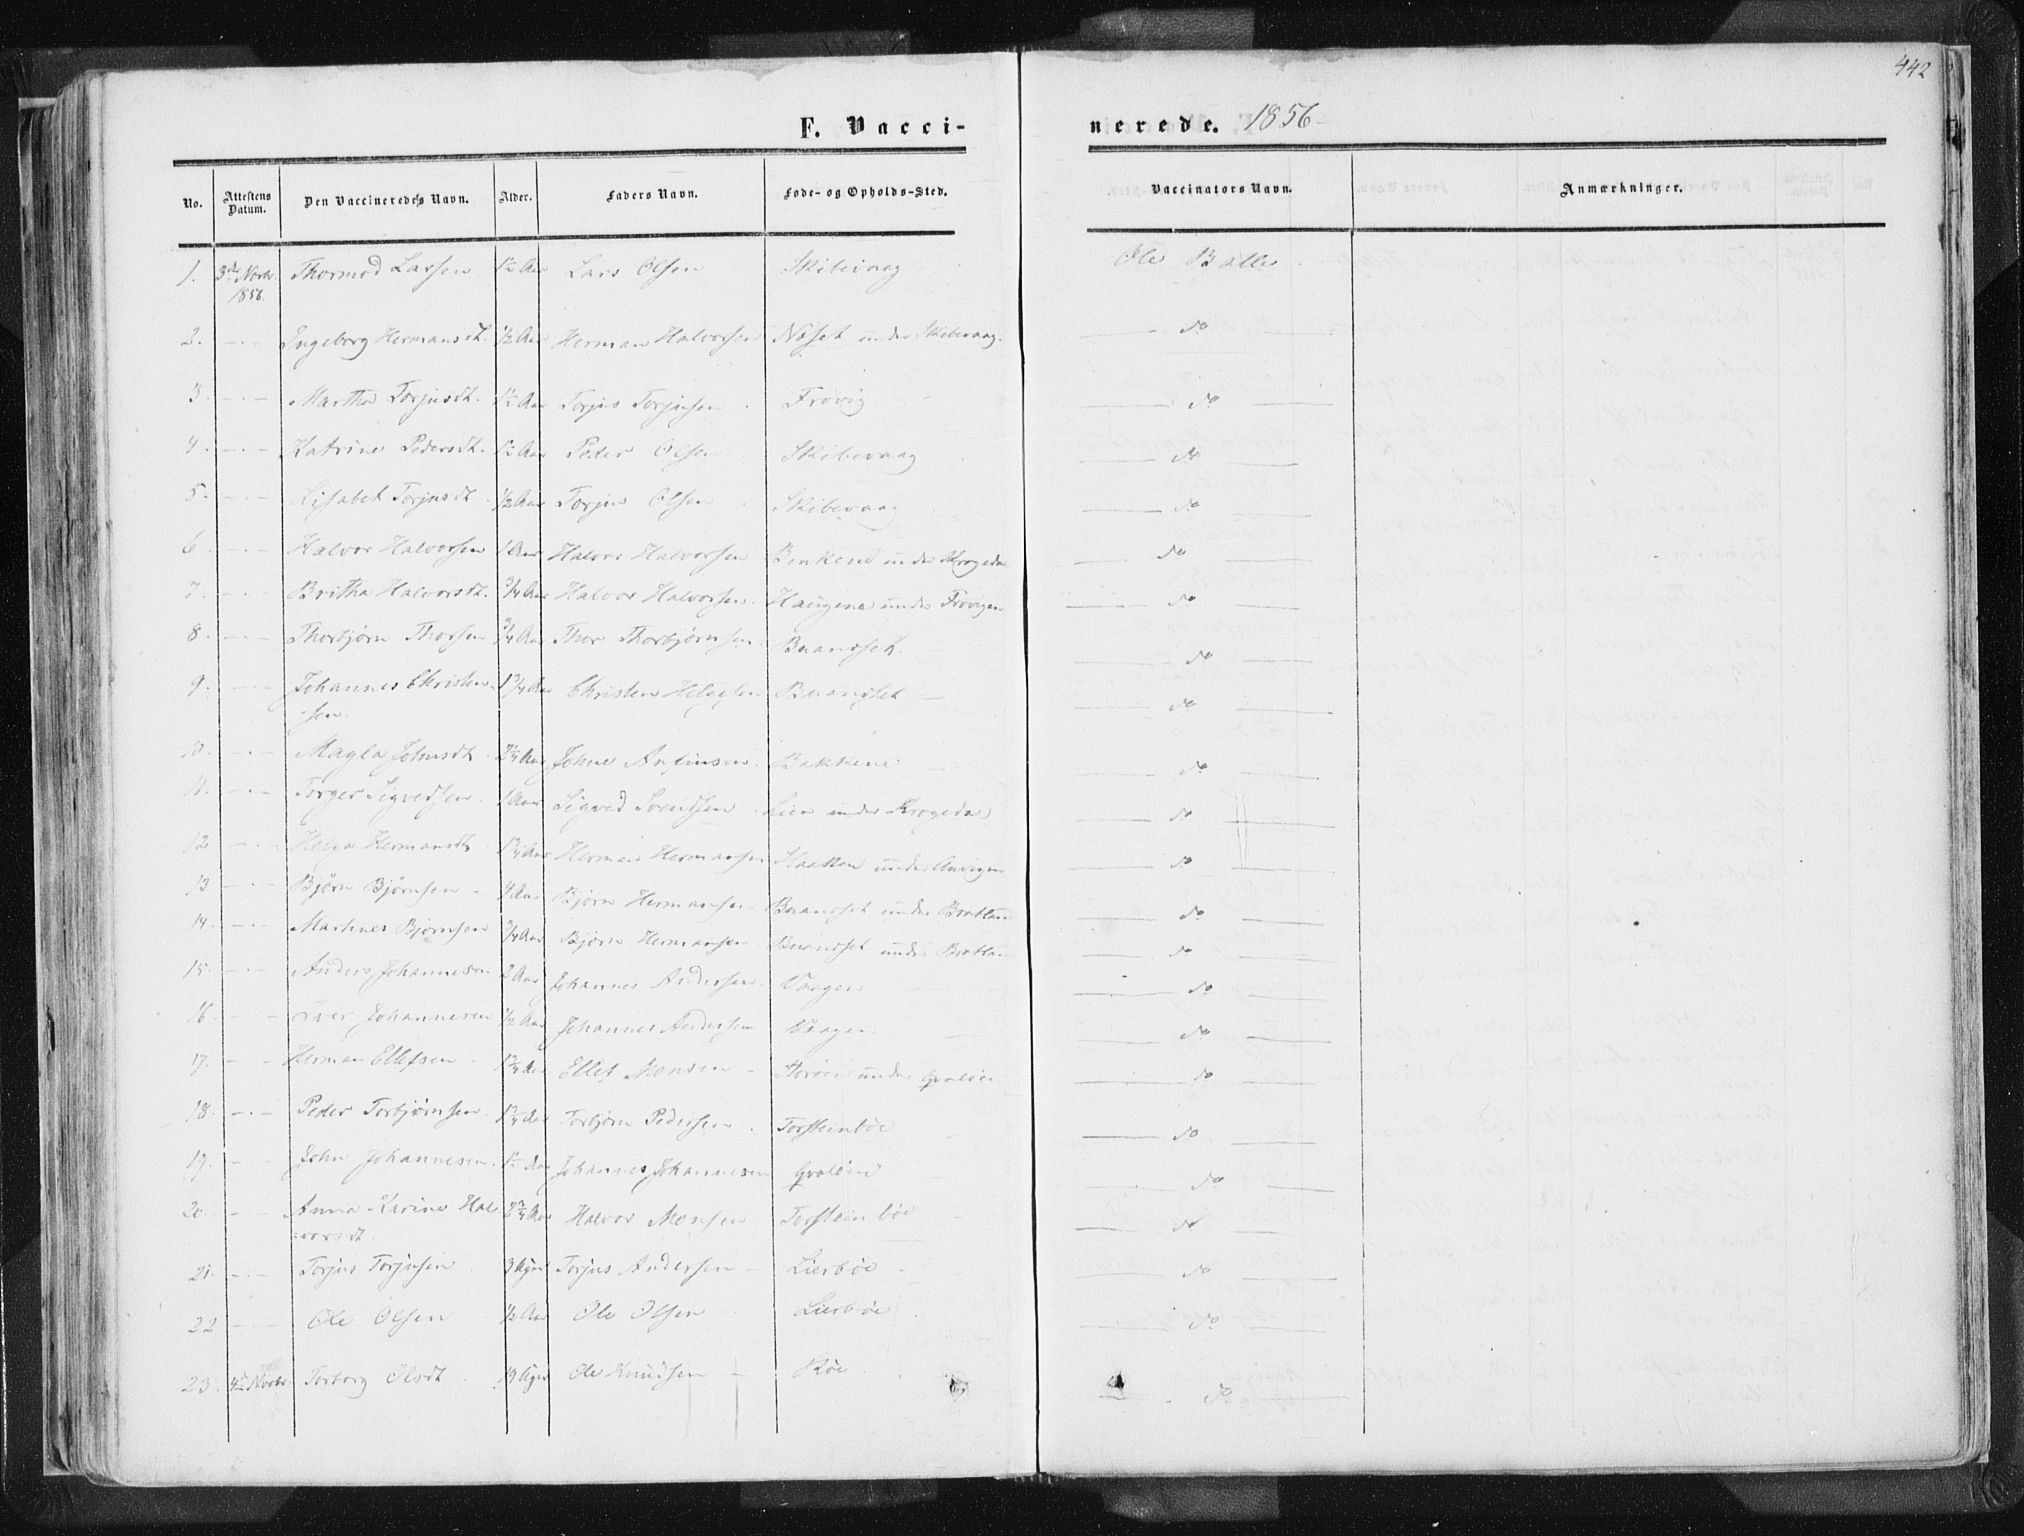 442
F. Vaccinerede. 1856
No. Attestens Datum. Den Vaccineredes Navn. Alder. Faders Navn. Føde- og Opholds-Sted. Vaccinators Navn. Anmærkninger.
1. 3die Novbr. 1856. Thormod Larsen 1½ Aar Lars Olsen Skibevaag Ole Balle
2. — · — Ingeborg Hermansdt. ½ Aar Herman Halvorsen Næset under Skibevaag. — do —
3. — · — Martha Torjusdt. 1½ Aar Torjus Torjusen Frøvig — do —
4. — · — Katrine Pedersdt. 1½ Aar Peder Olsen Skibevaag — do —
5. — · — Lisabet Torjusdt. ½ Aar Torjus Olsen Skibevaag — do —
6. — · — Halvor Halvorsen 1 Aar Halvor Halvorsen under — do —
7. — · — Britha Halvorsdt. ¾ Aar Halvor Halvorsen. Haugene under Frøvigen — do —
8. — · — Thorbjørn Thorsen ¾ Aar Thor Thorbjørnsen Buandset. — do —
9. — · — Johannes Christensen. 1¾ Aar Christen Helgesen Buandset — do —
10. — · — Magla Johnsdt. Aar Johne Anfinsen. Bakkene — do —
11. — · — Torger Sigvedsen 1 Aar Sigved Svendsen Lien under Krogedal — do —
12 — · — Helga Hermansdt. Aar Herman Hermansen under — do —
13 — · — Bjørn Bjørnsen 4 Aar Bjørn Hermansen Buandset under — do —
14. — · — Martines Bjørnsen ¾ Aar Bjørn Hermansen Buandset under — do —
15. — · — Anders Johannesen 2 Aar Johannes Andersen. Vaagen — do —
16. — · — Iver Johannesen ½ Aar Johannes Andersen Vaagen — do —
17. — · — Herman Ellefsen 1¾ Aar Ellef Monsen under — do —
18. — · — Peder Torbjørnsen 1¾ Aar Torbjørn Pedersen Torsteinbøe — do —
19. — · — John Johannesen. 1½ Aar Johannes Johannesen — do —
20. — · — Anna Karine Halvorsdt. 2¾ Aar Halvor Monsen Torsteinbøe — do —
21. — · — Torjus Torjusen Torjus Andersen Lierbøe — do —
22 — · — Ole Olsen ½ Aar Ole Olsen Lierbøe — do —
23. 4de Novbr. Torborg Olsdt. Ole Knudsen Røe — do —